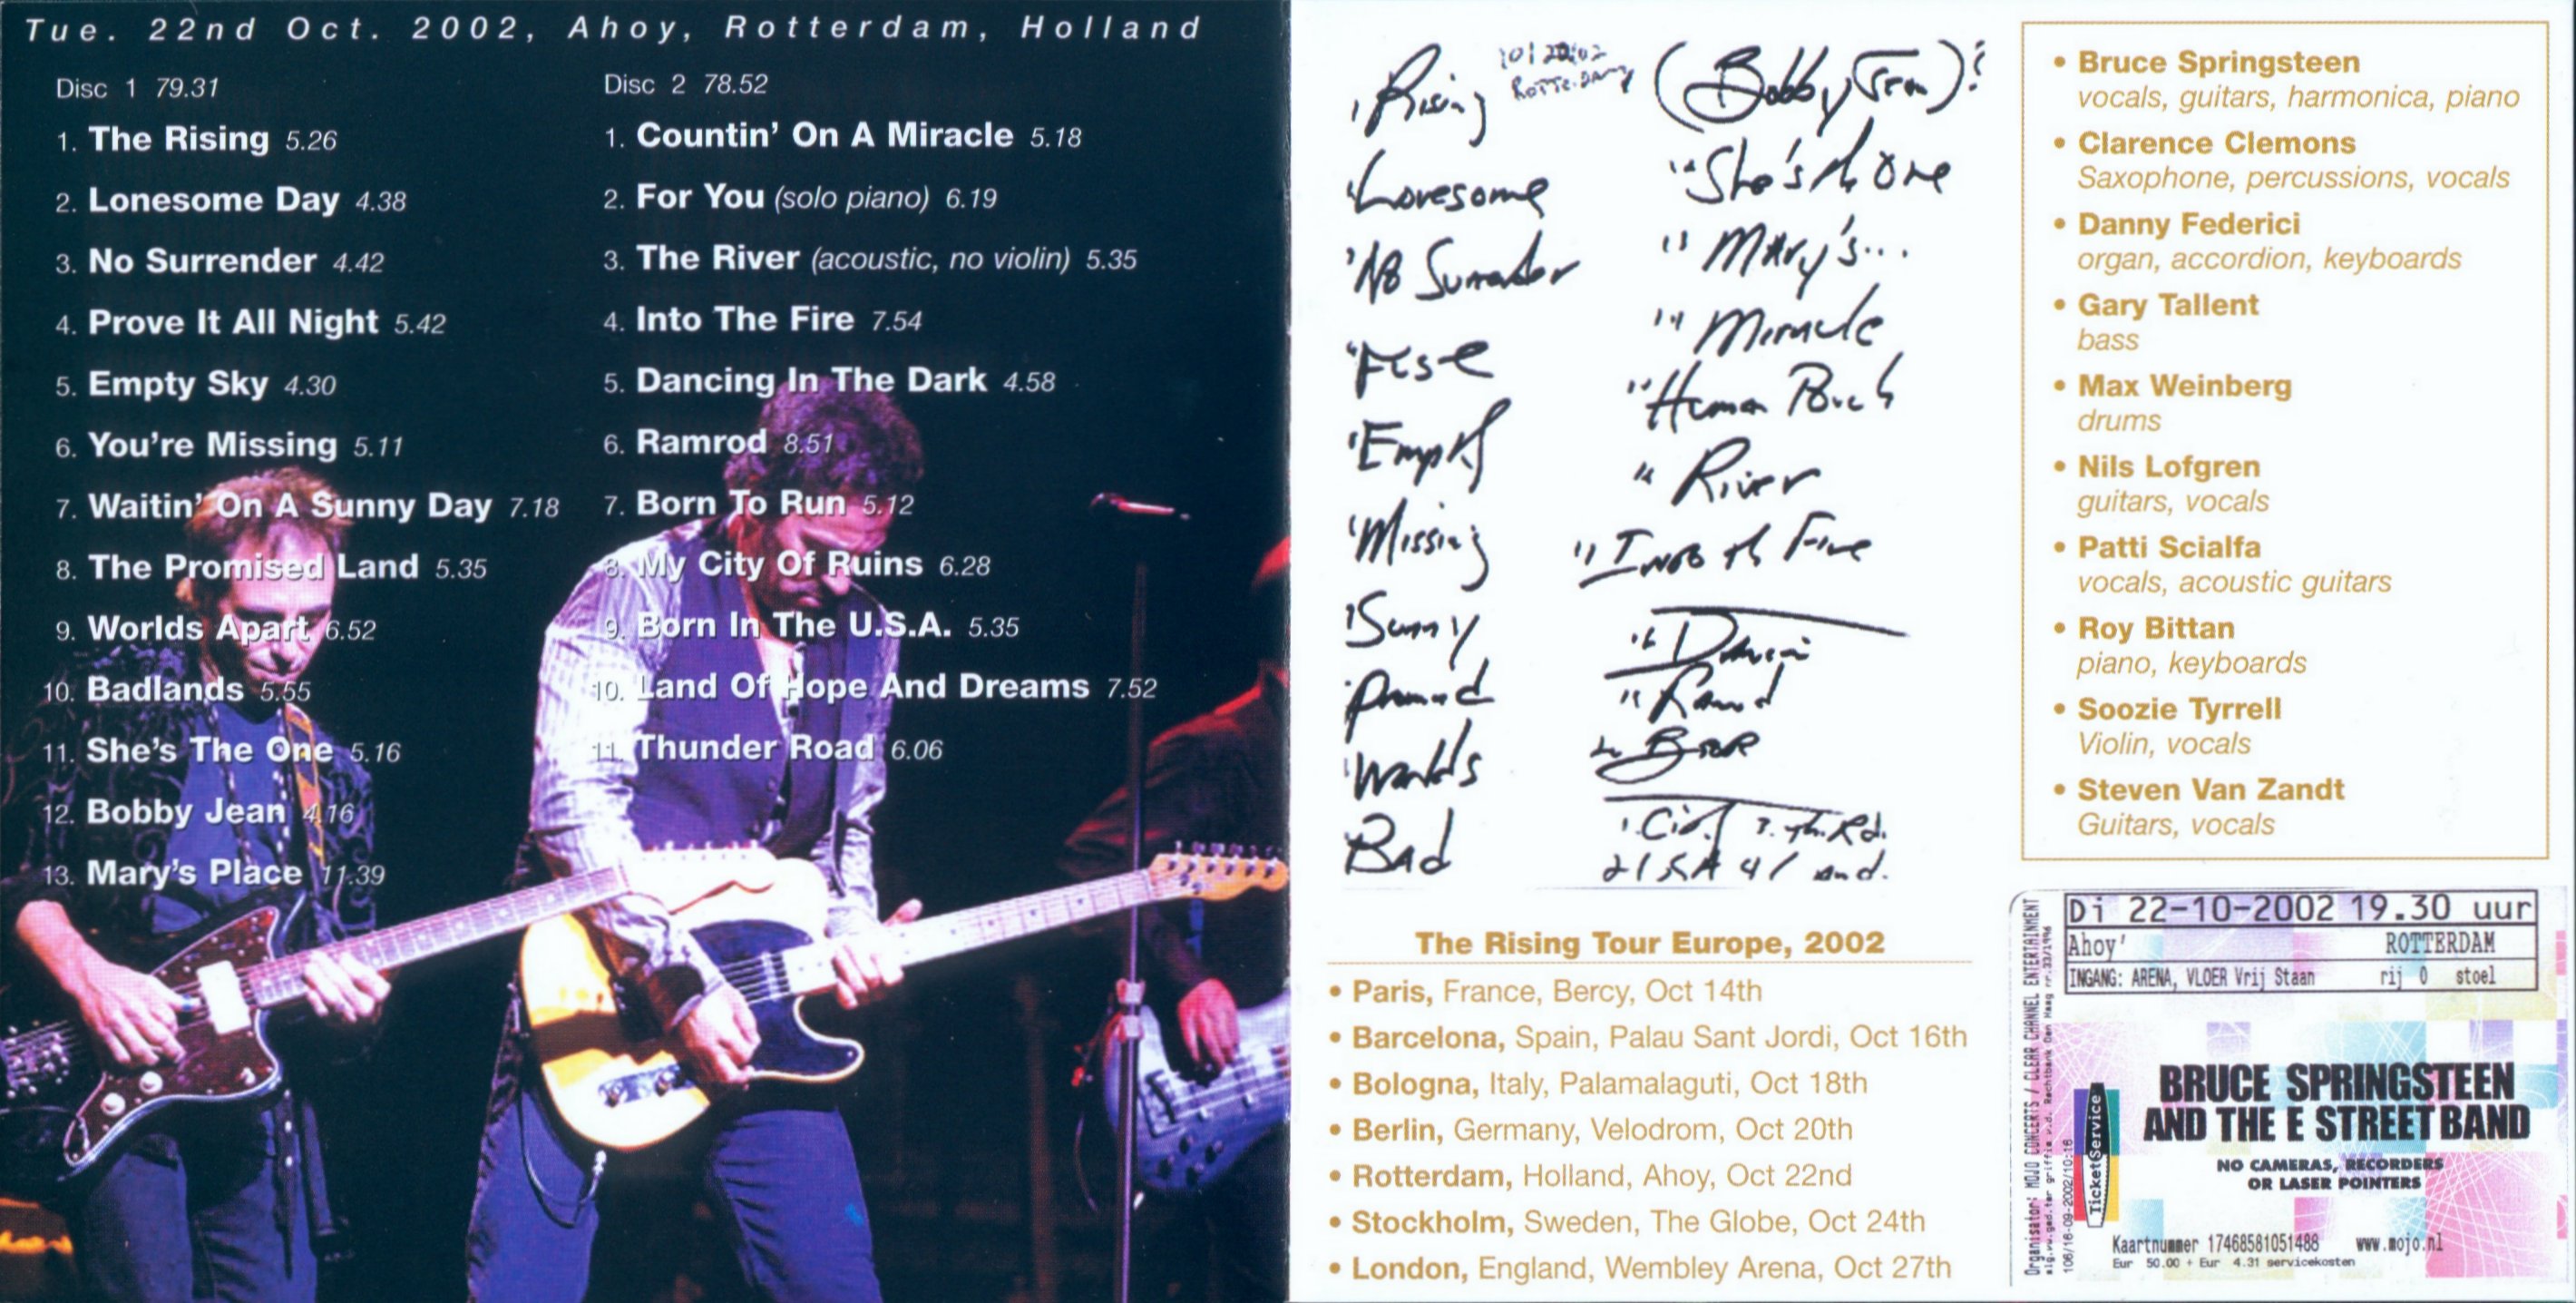 Tue. 22nd Oct. 2002, Ahoy, Rotterdam, Holland
Disc 1 79.31
1. The Rising 5.26
2. Lonesome Day 4.38
3. No Surrender 4.42
4. Prove It All Night 5.42
5. Empty Sky 4.30
6. You're Missing 5.11
7. Waitin' On A Sunny Day 7.18
8. The Promised Land 5.35
9. Worlds Apart 6.52
10. Badlands 5.55
11. She's The One 5.16
12. Bobby Jean 4.16
13. Mary's Place 11.39
Disc 2 78.52
1. Countin' On A Miracle 5.18
2. For You (solo piano) 6.19
3. The River (acoustic, no violin) 5.35
4. Into The Fire 7.54
5. Dancing In The Dark 4.58
6. Ramrod 8.51
7. Born To Run 5.12
8. My City Of Ruins 6.28
9. Born In The U.S.A. 5.35
10. Land Of Hope And Dreams 7.52
11. Thunder Road 6.06
Rising
Lonesome
No Surrender
Empty
Missing
Sunny
Worlds
Bad
(Bobby Jean)?
She's th One
Mary's...
Miracle
Human Touch
River
Into th Fire
City 3. Th. Rd.
2 USA 4
The Rising Tour Europe, 2002
• Paris, France, Bercy, Oct 14th
• Barcelona, Spain, Palau Sant Jordi, Oct 16th
• Bologna, Italy, Palamalaguti, Oct 18th
• Berlin, Germany, Velodrom, Oct 20th
• Rotterdam, Holland, Ahoy, Oct 22nd
• Stockholm, Sweden, The Globe, Oct 24th
• London, England, Wembley Arena, Oct 27th
• Bruce Springsteen
vocals, guitars, harmonica, piano
• Clarence Clemons
Saxophone, percussions, vocals
• Danny Federici
organ, accordion, keyboards
• Gary Tallent
bass
• Max Weinberg
drums
• Nils Lofgren
guitars, vocals
• Patti Scialfa
vocals, acoustic guitars
• Roy Bittan
piano, keyboards
• Soozie Tyrrell
Violin, vocals
• Steven Van Zandt
Guitars, vocals
Di 22-10-2002 19.30 uur
Ahoy' ROTTERDAM
INGANG: ARENA, VLOER Vrij Staan rij 0 stoel
BRUCE SPRINGSTEEN
AND THE E STREET BAND
NO CAMERAS, RECORDERS
OR LASER POINTERS
Kaartnummer 17468581051488 www.mojo.nl
Eur 50.00 + Eur 4.31 servicekosten
TicketService
Organisator: MOJO CONCERTS / CLEAR CHANNEL ENTERTAINMENT
106/16-09-2002/10:16